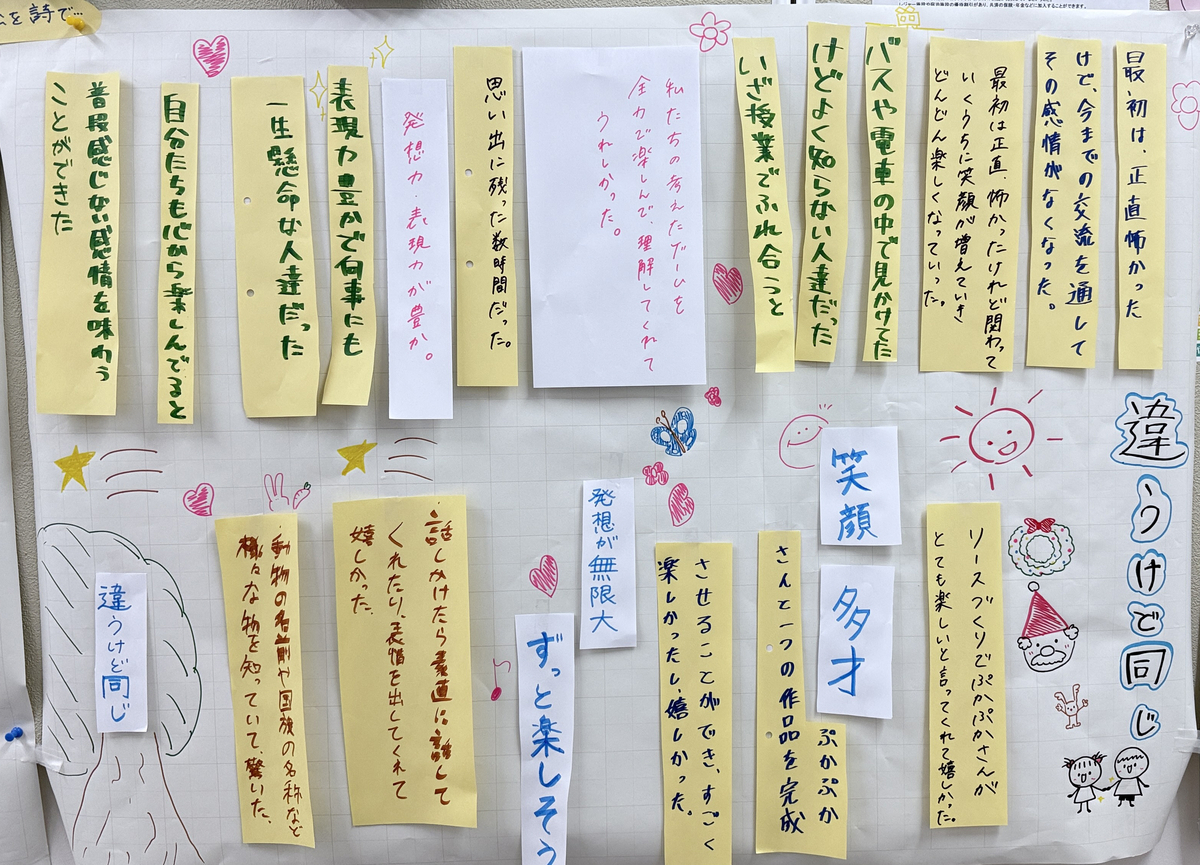 を詩で…
違うけど同じ
最初は、正直怖かった
けど、今までの交流を通して
その感情がなくなった。
最初は正直、怖かったけれど関わって
いくうちに笑顔が増えていき
どんどん楽しくなっていった。
バスや電車の中で見かけてた
けどよく知らない人達だった
いざ授業でふれ合うと
私たちの考えたゲームを
全力で楽しんで、理解してくれて
うれしかった。
思い出に残った数時間だった。
発想力・表現力が豊か。
表現力豊かで何事にも
一生懸命な人達だった
自分たちも心から楽しんでると
普段感じない感情を味わう
ことができた
リースづくりでぷかぷかさんが
とても楽しいと言ってくれて嬉しかった。
笑顔
多才
ぷかぷか
さんと一つの作品を完成
させることができ、すごく
楽しかったし、嬉しかった。
発想が無限大
ずっと楽しそう
話しかけたら素直に話して
くれたり、表情を出してくれて
嬉しかった。
動物の名前や国旗の名称など
様々な物を知っていて、驚いた。
違うけど同じ